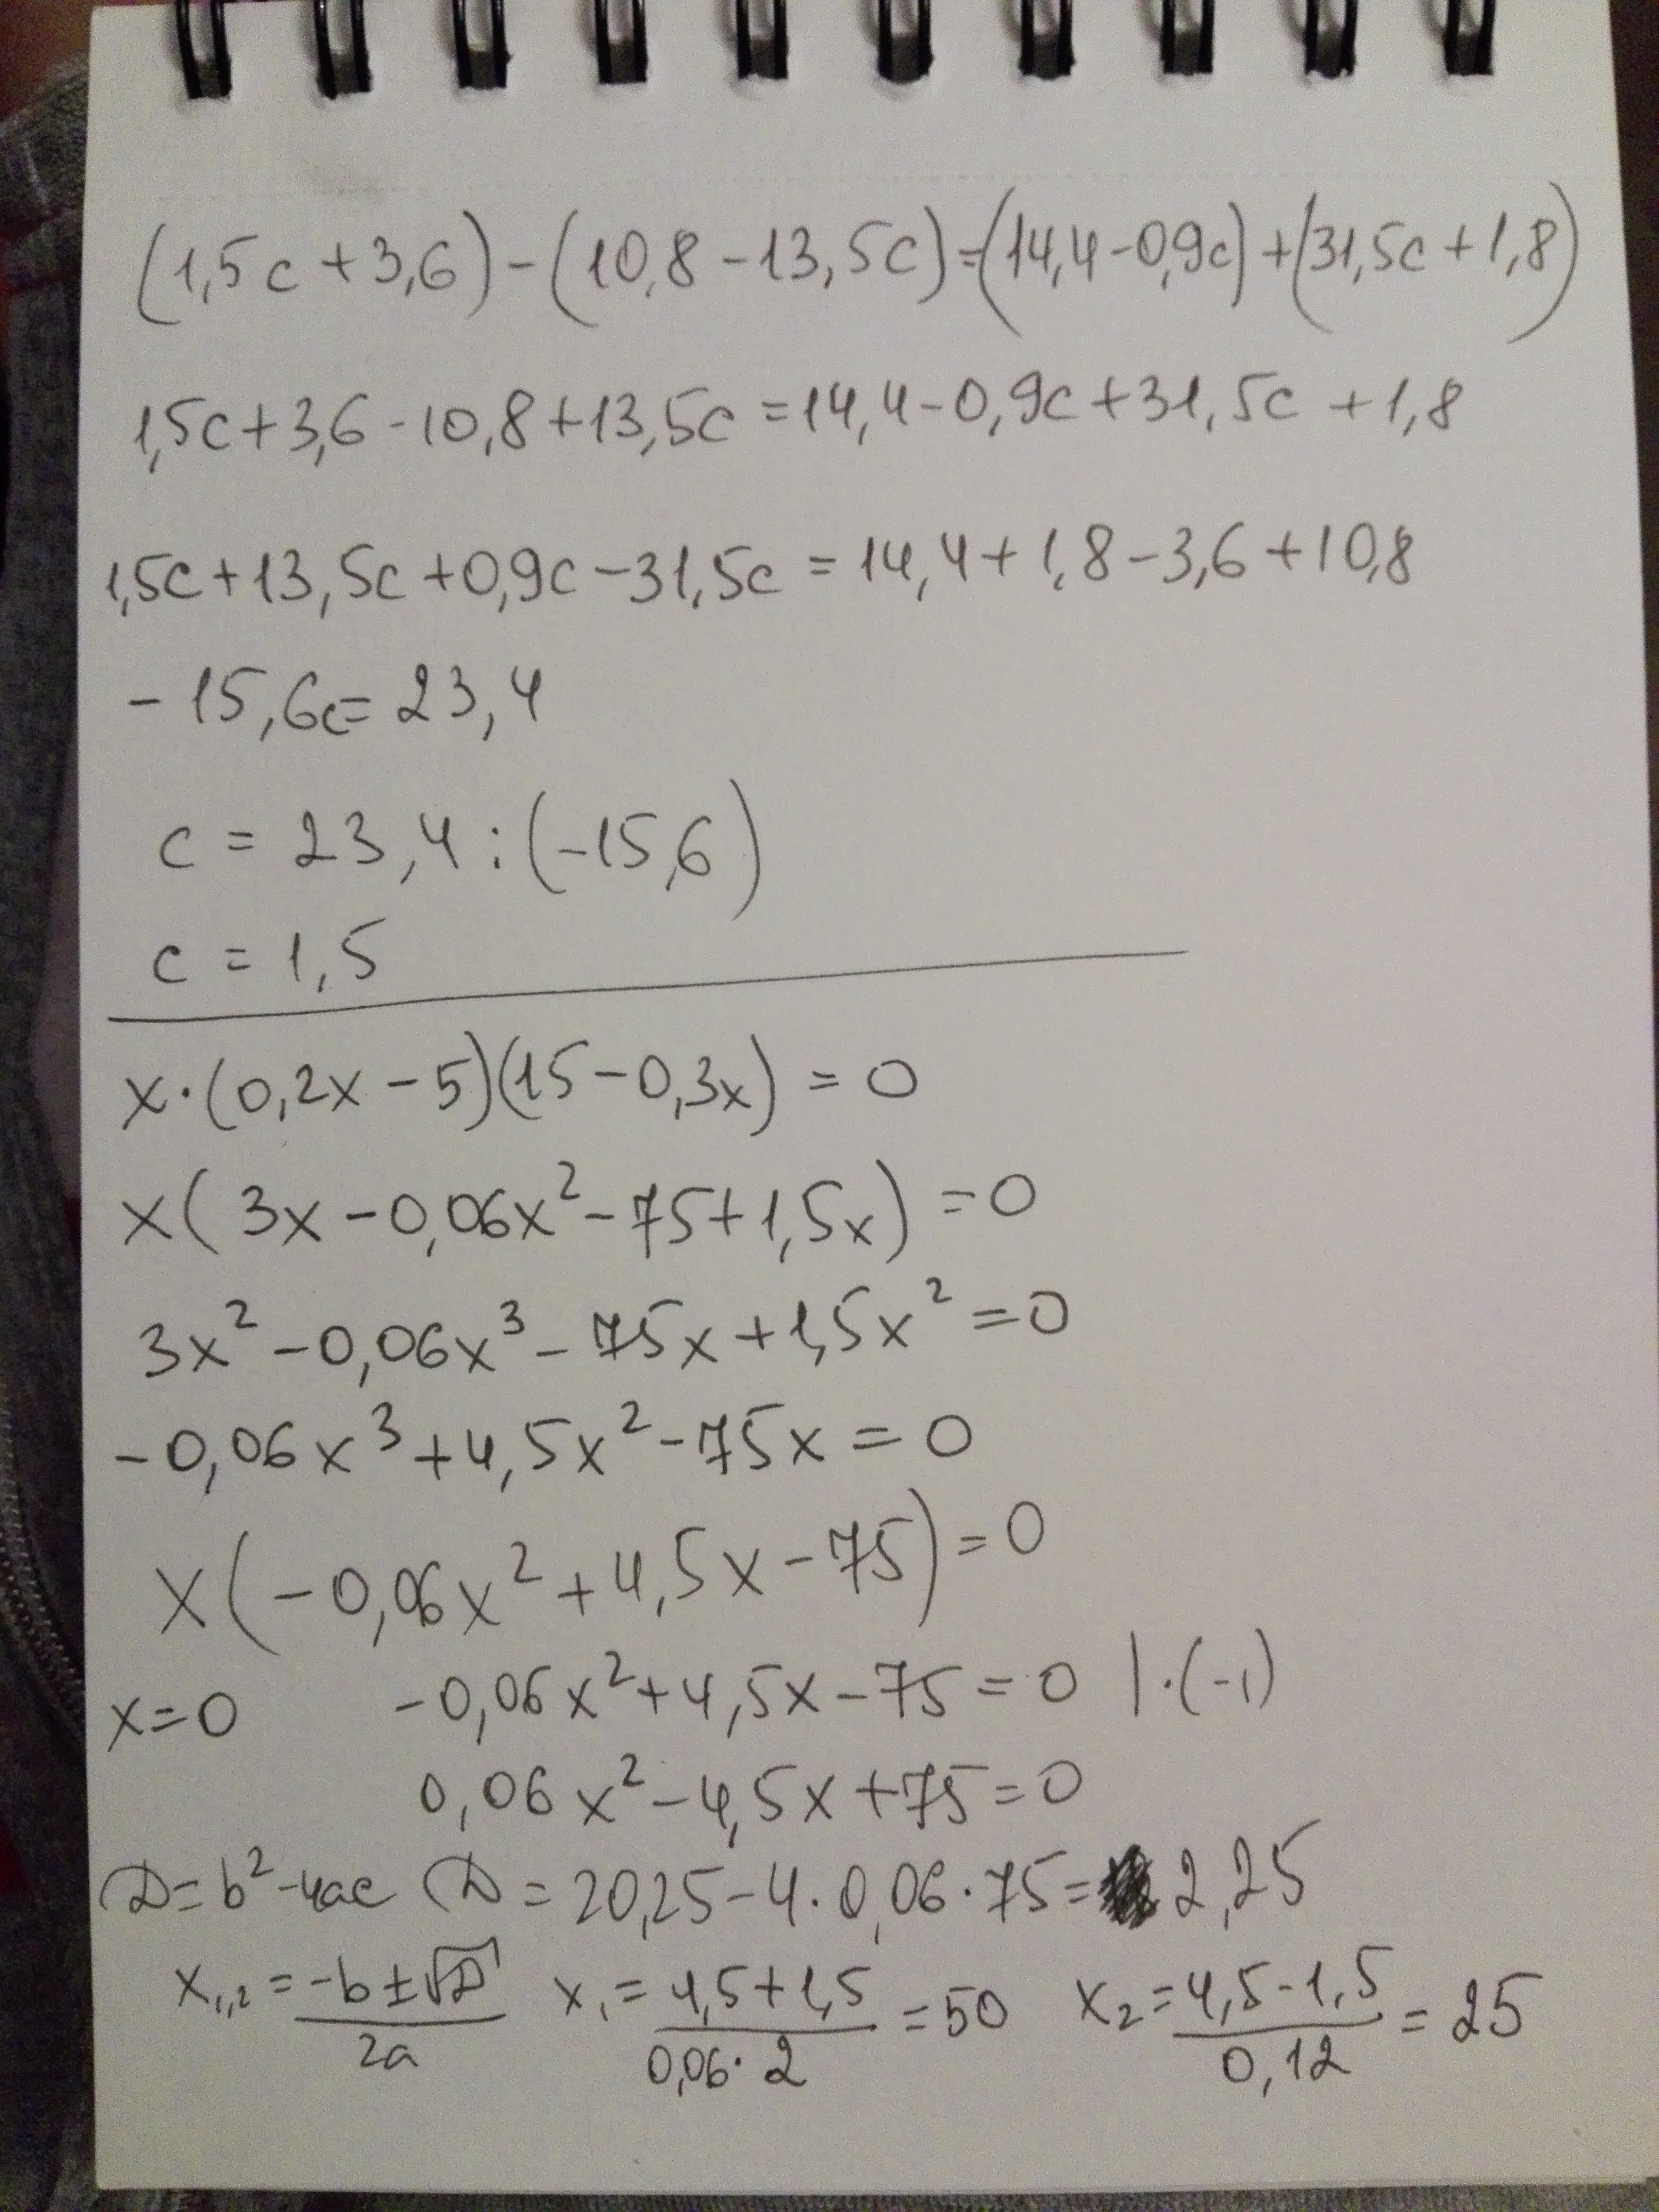 (1,5c+3,6)-(10,8-13,5c)=(14,4-0,9c)+(31,5c+1,8)
1,5c+3,6-10,8+13,5c=14,4-0,9c+31,5c+1,8
1,5c+13,5c+0,9c-31,5c=14,4+1,8-3,6+10,8
-15,6c=23,4
c=23,4:(-15,6)
c=1,5
x·(0,2x-5)(15-0,3x)=0
x(3x-0,06x²-75+1,5x)=0
3x²-0,06x³-75x+1,5x²=0
-0,06x³+4,5x²-75x=0
x(-0,06x²+4,5x-75)=0
x=0 -0,06x²+4,5x-75=0 |·(-1)
0,06x²-4,5x+75=0
D=b²-4ac D=20,25-4·0,06·75=2,25
x₁,₂=(-b±√D)/2a x₁=(4,5+1,5)/(0,06·2)=50 x₂=(4,5-1,5)/0,12=25